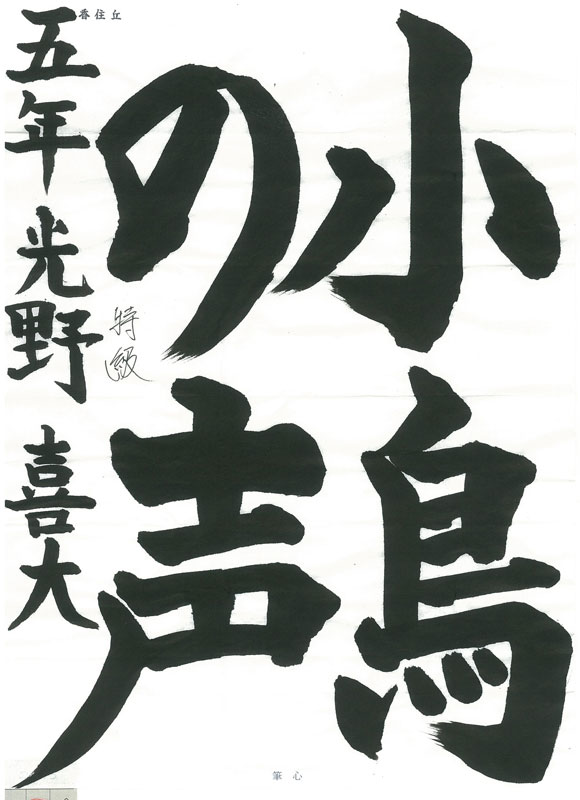 小鳥
の声
五年 光野 喜大
特級
香住丘
筆心